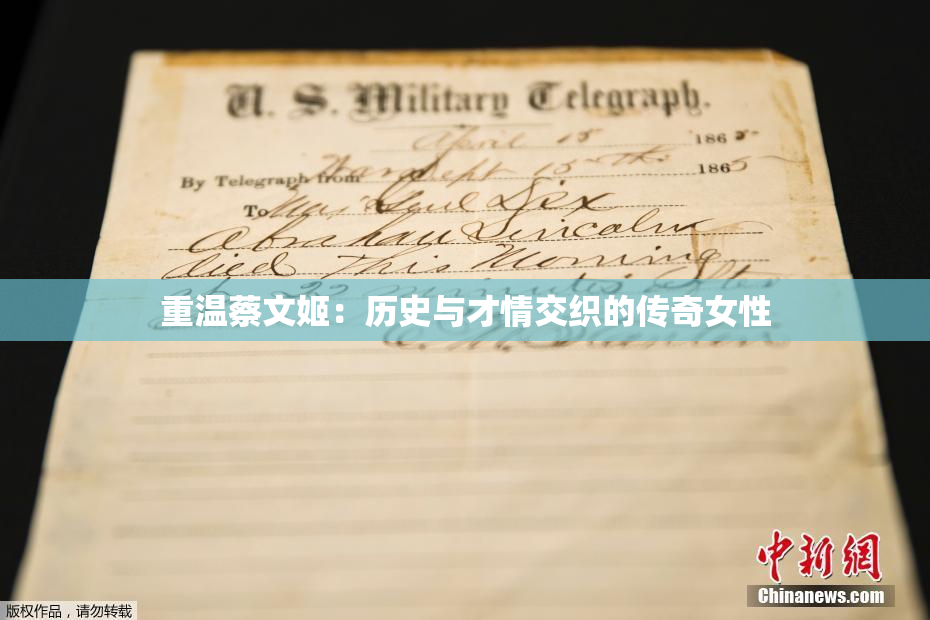 U. S. Military Telegraph.
April 15 1865
By Telegraph from War Dept 15th 1865
To Maj Genl Dix
Abraham Lincoln
died This Morning
at 22 minutes after
重温蔡文姬：历史与才情交织的传奇女性
E. M. Stanton
中新网
Chinanews.com
版权作品，请勿转载